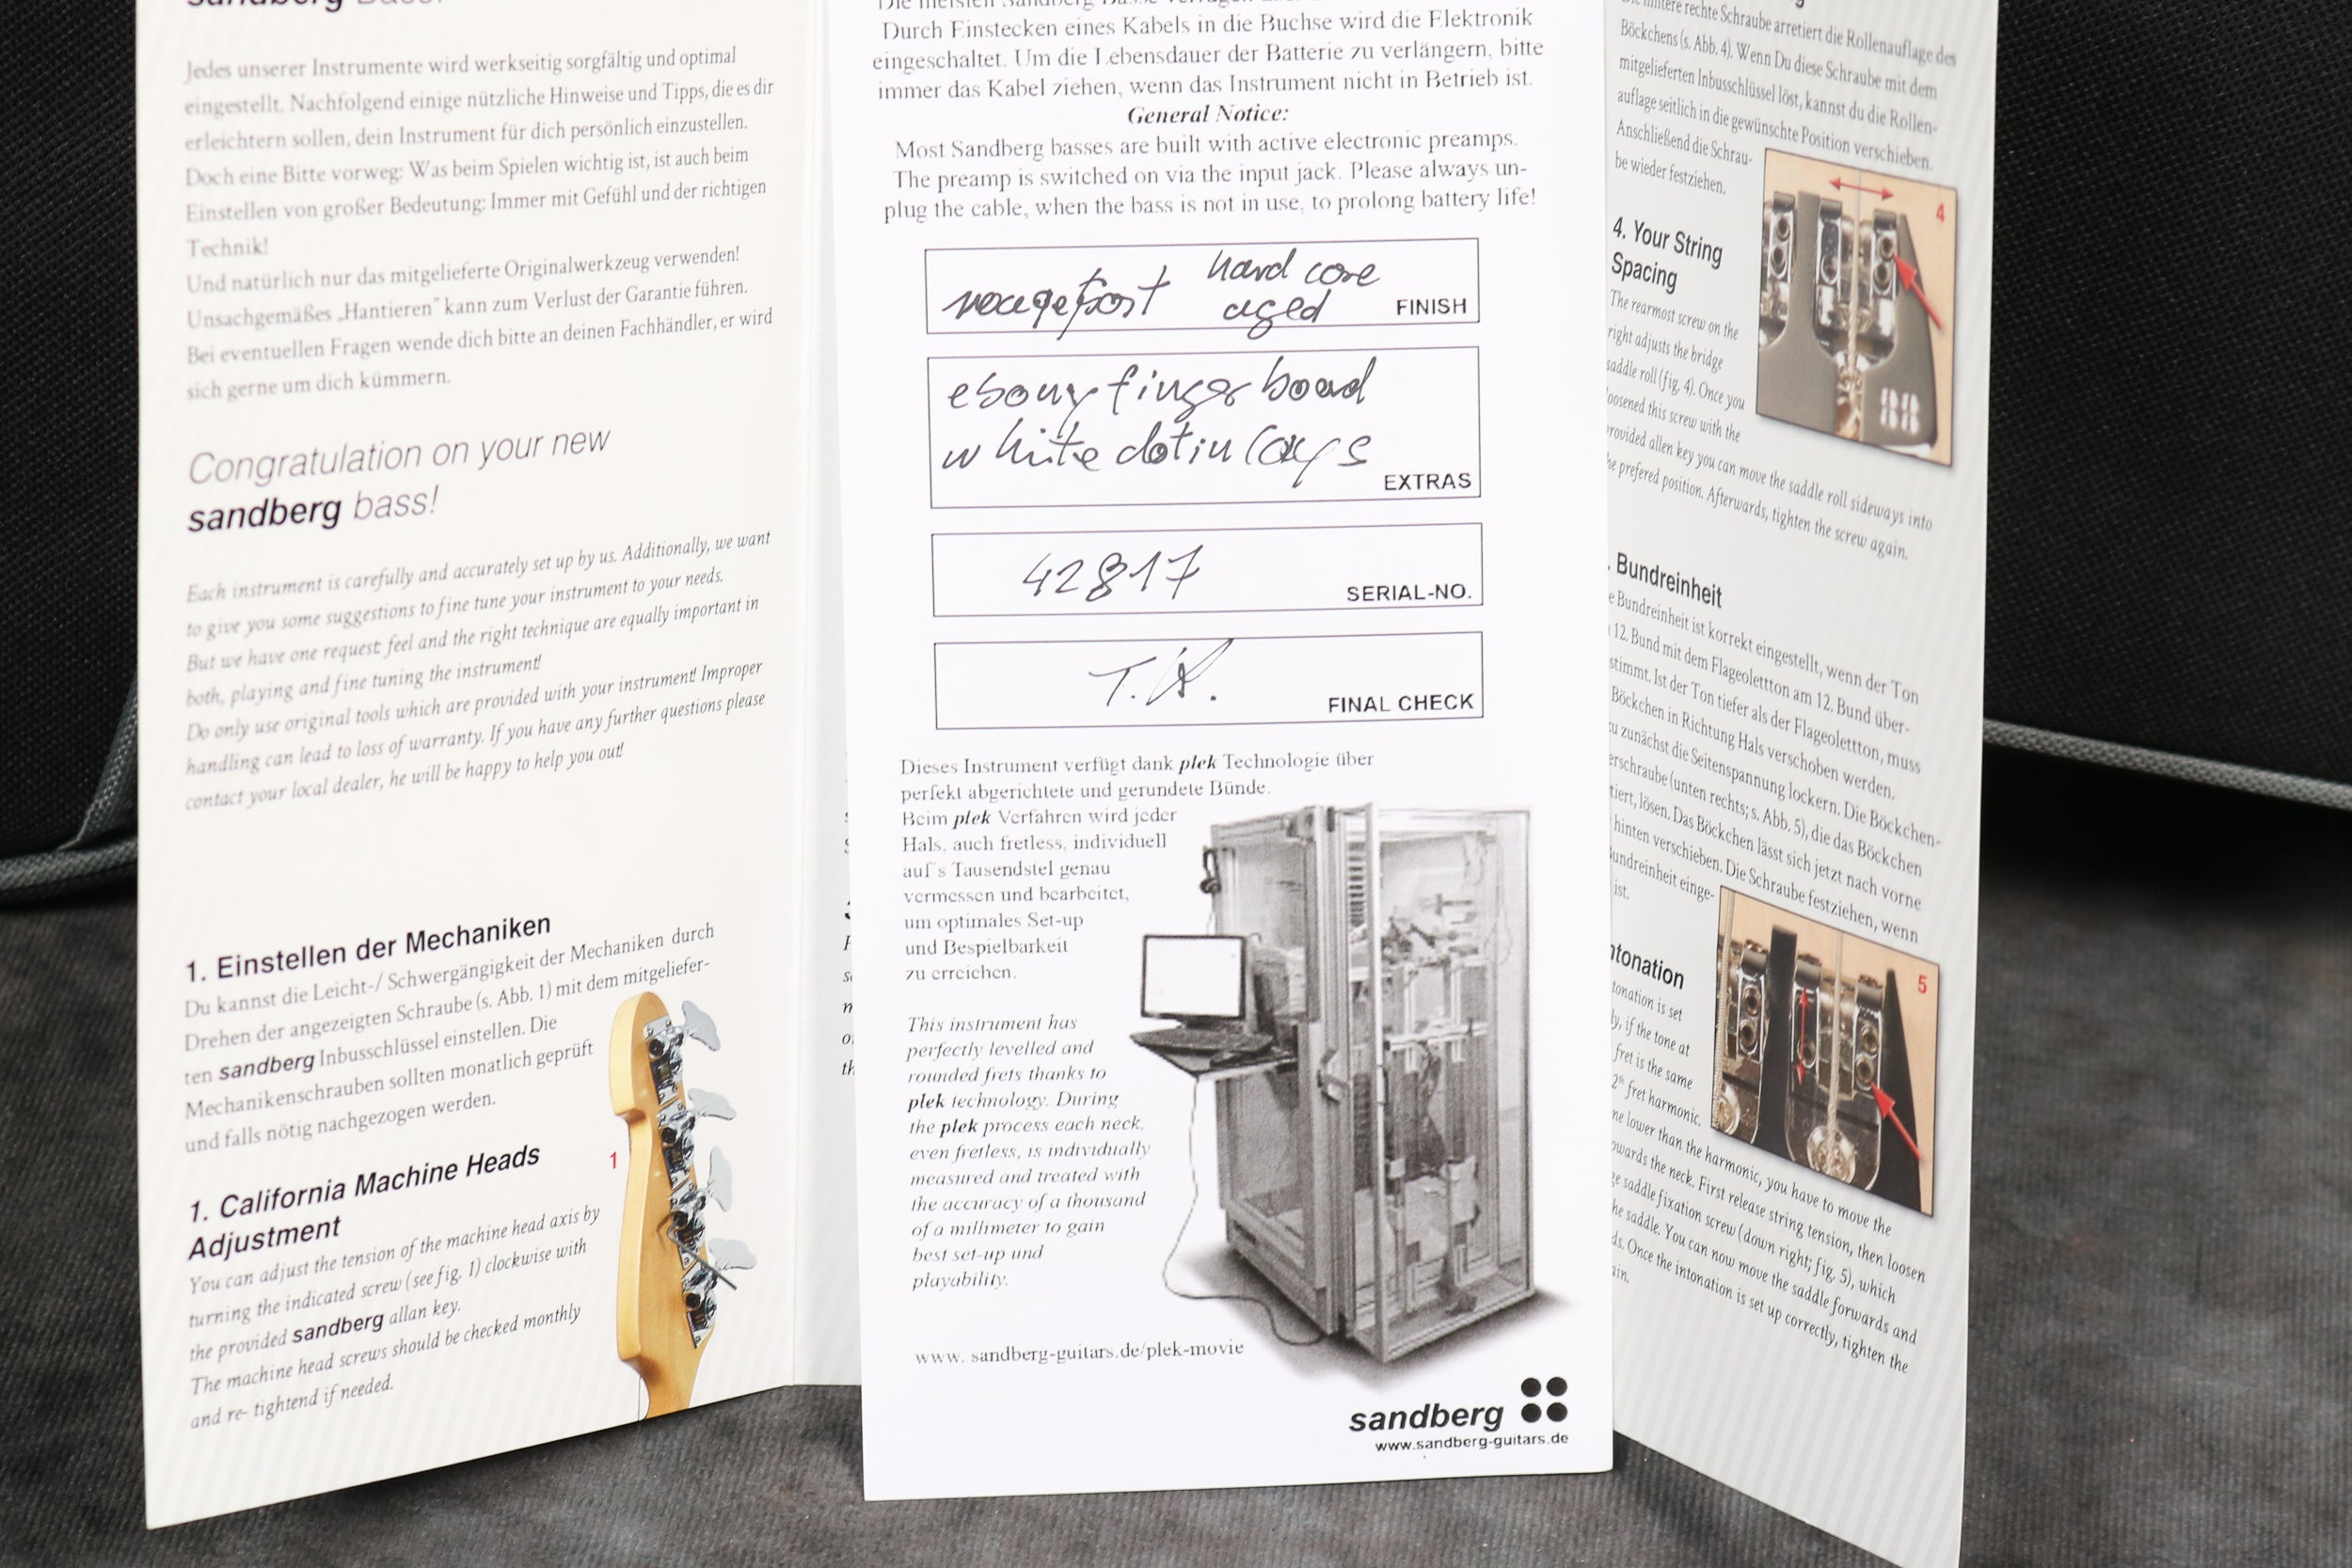 sandberg Bass!
Jedes unserer Instrumente wird werkseitig sorgfältig und optimal
eingestellt. Nachfolgend einige nützliche Hinweise und Tipps, die es dir
erleichtern sollen, dein Instrument für dich persönlich einzustellen.
Doch eine Bitte vorweg: Was beim Spielen wichtig ist, ist auch beim
Einstellen von großer Bedeutung: Immer mit Gefühl und der richtigen
Technik!
Und natürlich nur das mitgelieferte Originalwerkzeug verwenden!
Unsachgemäßes „Hantieren" kann zum Verlust der Garantie führen.
Bei eventuellen Fragen wende dich bitte an deinen Fachhändler, er wird
sich gerne um dich kümmern.
Congratulation on your new
sandberg bass!
Each instrument is carefully and accurately set up by us. Additionally, we want
to give you some suggestions to fine tune your instrument to your needs.
But we have one request: feel and the right technique are equally important in
both, playing and fine tuning the instrument!
Do only use original tools which are provided with your instrument! Improper
handling can lead to loss of warranty. If you have any further questions please
contact your local dealer, he will be happy to help you out!
1. Einstellen der Mechaniken
Du kannst die Leicht-/ Schwergängigkeit der Mechaniken durch
Drehen der angezeigten Schraube (s. Abb. 1) mit dem mitgeliefer-
ten sandberg Inbusschlüssel einstellen. Die
Mechanikenschrauben sollten monatlich geprüft
und falls nötig nachgezogen werden.
1. California Machine Heads
Adjustment
You can adjust the tension of the machine head axis by
turning the indicated screw (see fig. 1) clockwise with
the provided sandberg allan key.
The machine head screws should be checked monthly
and re- tightend if needed.
1
Durch Einstecken eines Kabels in die Buchse wird die Elektronik
eingeschaltet. Um die Lebensdauer der Batterie zu verlängern, bitte
immer das Kabel ziehen, wenn das Instrument nicht in Betrieb ist.
General Notice:
Most Sandberg basses are built with active electronic preamps.
The preamp is switched on via the input jack. Please always un-
plug the cable, when the bass is not in use, to prolong battery life!
hard core
aged FINISH
ebony fingerboard
white dotinlays
EXTRAS
42817
SERIAL-NO.
T.
FINAL CHECK
Dieses Instrument verfügt dank plek Technologie über
perfekt abgerichtete und gerundete Bünde.
Beim plek Verfahren wird jeder
Hals, auch fretless, individuell
auf´s Tausendstel genau
vermessen und bearbeitet,
um optimales Set-up
und Bespielbarkeit
zu erreichen.
This instrument has
perfectly levelled and
rounded frets thanks to
plek technology. During
the plek process each neck,
even fretless, is individually
measured and treated with
the accuracy of a thousand
of a millimeter to gain
best set-up und
playability.
www. sandberg-guitars.de/plek-movie
sandberg
www.sandberg-guitars.de
rechte Schraube arretiert die Rollenauflage des
Böckchens (s. Abb. 4). Wenn Du diese Schraube mit dem
mitgelieferten Inbusschlüssel löst, kannst du die Rollen-
auflage seitlich in die gewünschte Position verschieben.
Anschließend die Schrau-
be wieder festziehen.
4
4. Your String
Spacing
The rearmost screw on the
right adjusts the bridge
saddle roll (fig. 4). Once you
loosened this screw with the
provided allen key you can move the saddle roll sideways into
the prefered position. Afterwards, tighten the screw again.
. Bundreinheit
Bundreinheit ist korrekt eingestellt, wenn der Ton
12. Bund mit dem Flageolettton am 12. Bund über-
stimmt. Ist der Ton tiefer als der Flageolettton, muss
Böckchen in Richtung Hals verschoben werden.
zunächst die Seitenspannung lockern. Die Böckchen-
(unten rechts; s. Abb. 5), die das Böckchen
lösen. Das Böckchen lässt sich jetzt nach vorne
hinten verschieben. Die Schraube festziehen, wenn
Bundreinheit einge-
ist.
5
Intonation
tonation is set
if the tone at
fret is the same
2th fret harmonic.
lower than the harmonic, you have to move the
towards the neck. First release string tension, then loosen
saddle fixation screw (down right; fig. 5), which
the saddle. You can now move the saddle forwards and
Once the intonation is set up correctly, tighten the